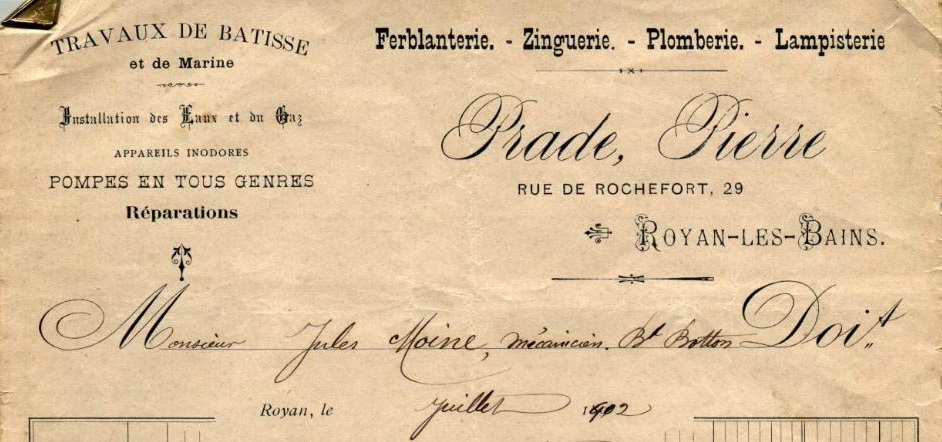 TRAVAUX DE BATISSE
et de Marine
Installation des Eaux et du Gaz
APPAREILS INODORES
POMPES EN TOUS GENRES
Réparations
Ferblanterie. - Zinguerie. - Plomberie. - Lampisterie
Prade, Pierre
RUE DE ROCHEFORT, 29
ROYAN-LES-BAINS.
Monsieur Jules Moine, mécanicien. Bt Botton Doit
Royan, le juillet 1902